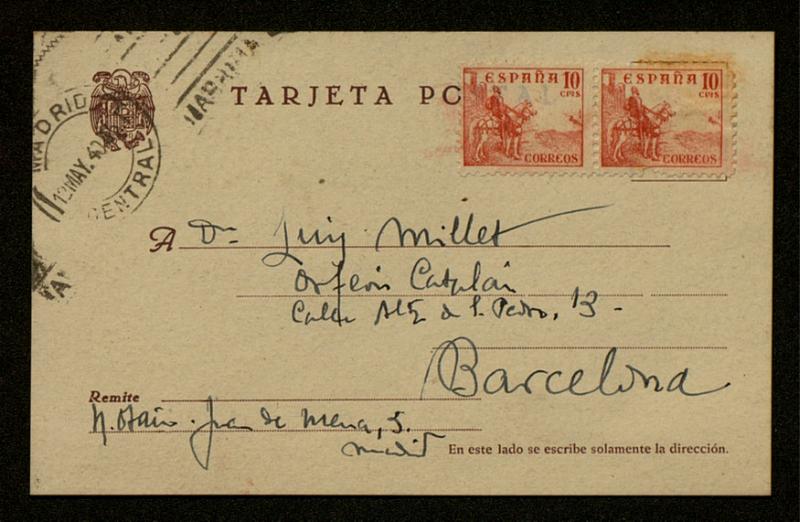 MADRID
12 MAY. 42
CENTRAL
TARJETA PO
ESPAÑA 10 CTS
CORREOS
ESPAÑA 10 CTS
CORREOS
A Dn Luis Millet
Orfeón Catalán
Calle Alta de S. Pedro, 13 -
Barcelona
Remite
N. Otaño. Juan de Mena, 5.
Madrid
En este lado se escribe solamente la dirección.